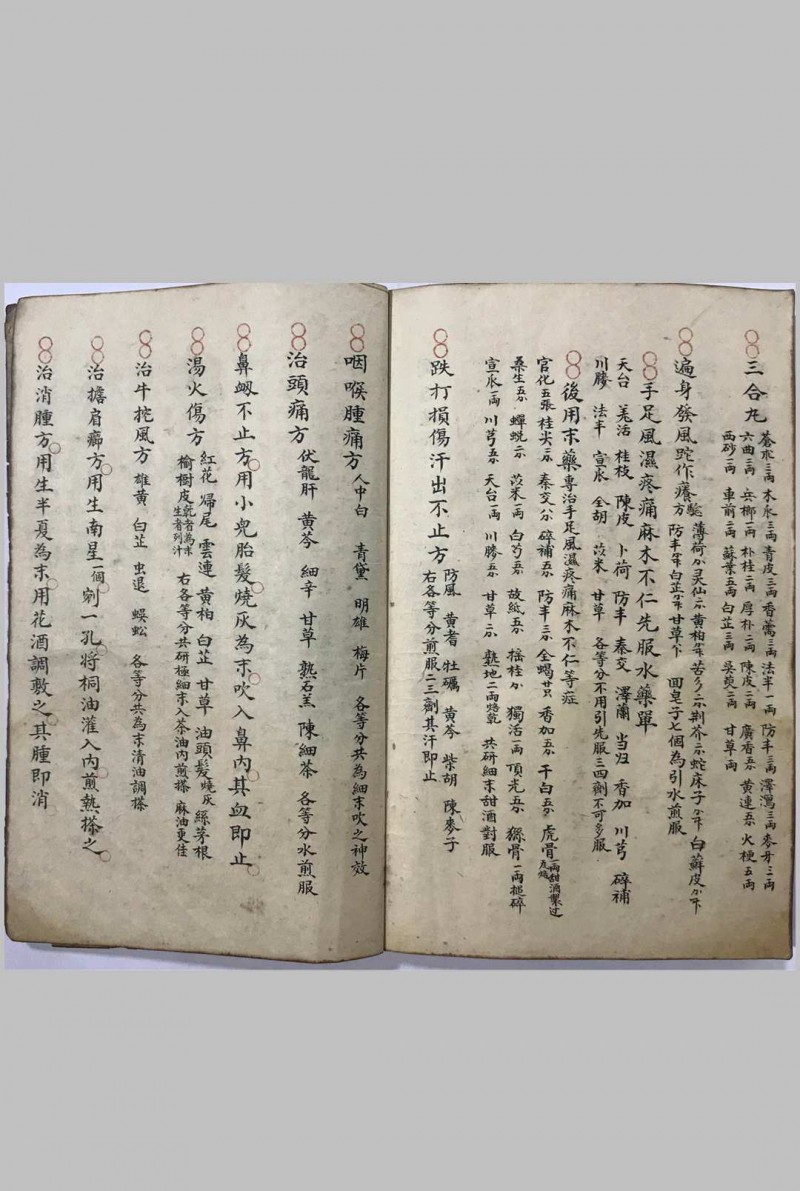 三合丸
蒼朮三両 木瓜三両 青皮三両 香薷三両 法半一両 防丰三両 澤瀉三両 麥牙三両
六曲三両 兵榔一両 朴桂二両 厚朴二両 陳皮二両 廣香五分 黄連五分 火梗五両
西砂一両 車前二両 蘇葉五両 白芷三両 吳萸二両 甘草両
遍身發風跎作癢方
薄荷 灵仙 黄柏 苦参 荆芥 蛇床子 白蘚皮
防丰 白芷 甘草 回皂子七個為引水煎服
手足風濕疼痛麻木不仁先服水藥單
天台 羗活 桂枝 陳皮 卜荷 防丰 秦交 澤蘭 当归 香加 川芎 碎補
川膝 法半 宣瓜 全胡 苡米 甘草 各等分不用引先服三四劑不可多服
後用末藥專治手足風濕疼痛麻木不仁等症
官化五張 桂尖 秦交 碎補五分 防丰 全蝎 香加五分 千白五分 虎骨一両甜酒製过
桑生五分 蟬蛻 苡米一両 白芍五分 故紙五分 榣桂 獨活一両 頂光五分 猴骨一両搥碎
宣瓜一両 川芎五分 天台一両 川膝五分 甘草 熟地二両焙乾 共研細末甜酒對服
跌打損傷汗出不止方
防風 黄耆 牡礪 黄芩 柴胡 陳麥子
右各等分煎服二三劑其汗即止
咽喉腫痛方 人中白 青黛 明雄 梅片 各等分共為細末吹之神效
治頭痛方 伏龍肝 黄芩 細辛 甘草 熟石羔 陳細茶 各等分水煎服
鼻衂不止方用小兒胎髮燒灰為末吹入鼻內其血即止
湯火傷方
紅花 歸尾 雲連 黄柏 白芷 甘草 油頭髮燒灰 絲茅根
榆樹皮乾者為末生者列汁 右各等分共研極細末入茶油内煎搽 麻油更佳
治牛挖風方 雄黄 白芷 虫退 蜈蚣 各等分共為末清油調搽
治擔肩癤方用生南星一個剜一孔將桐油灌入內煎熟搽之
治消腫方用生半夏為末用花酒調敷之其腫即消